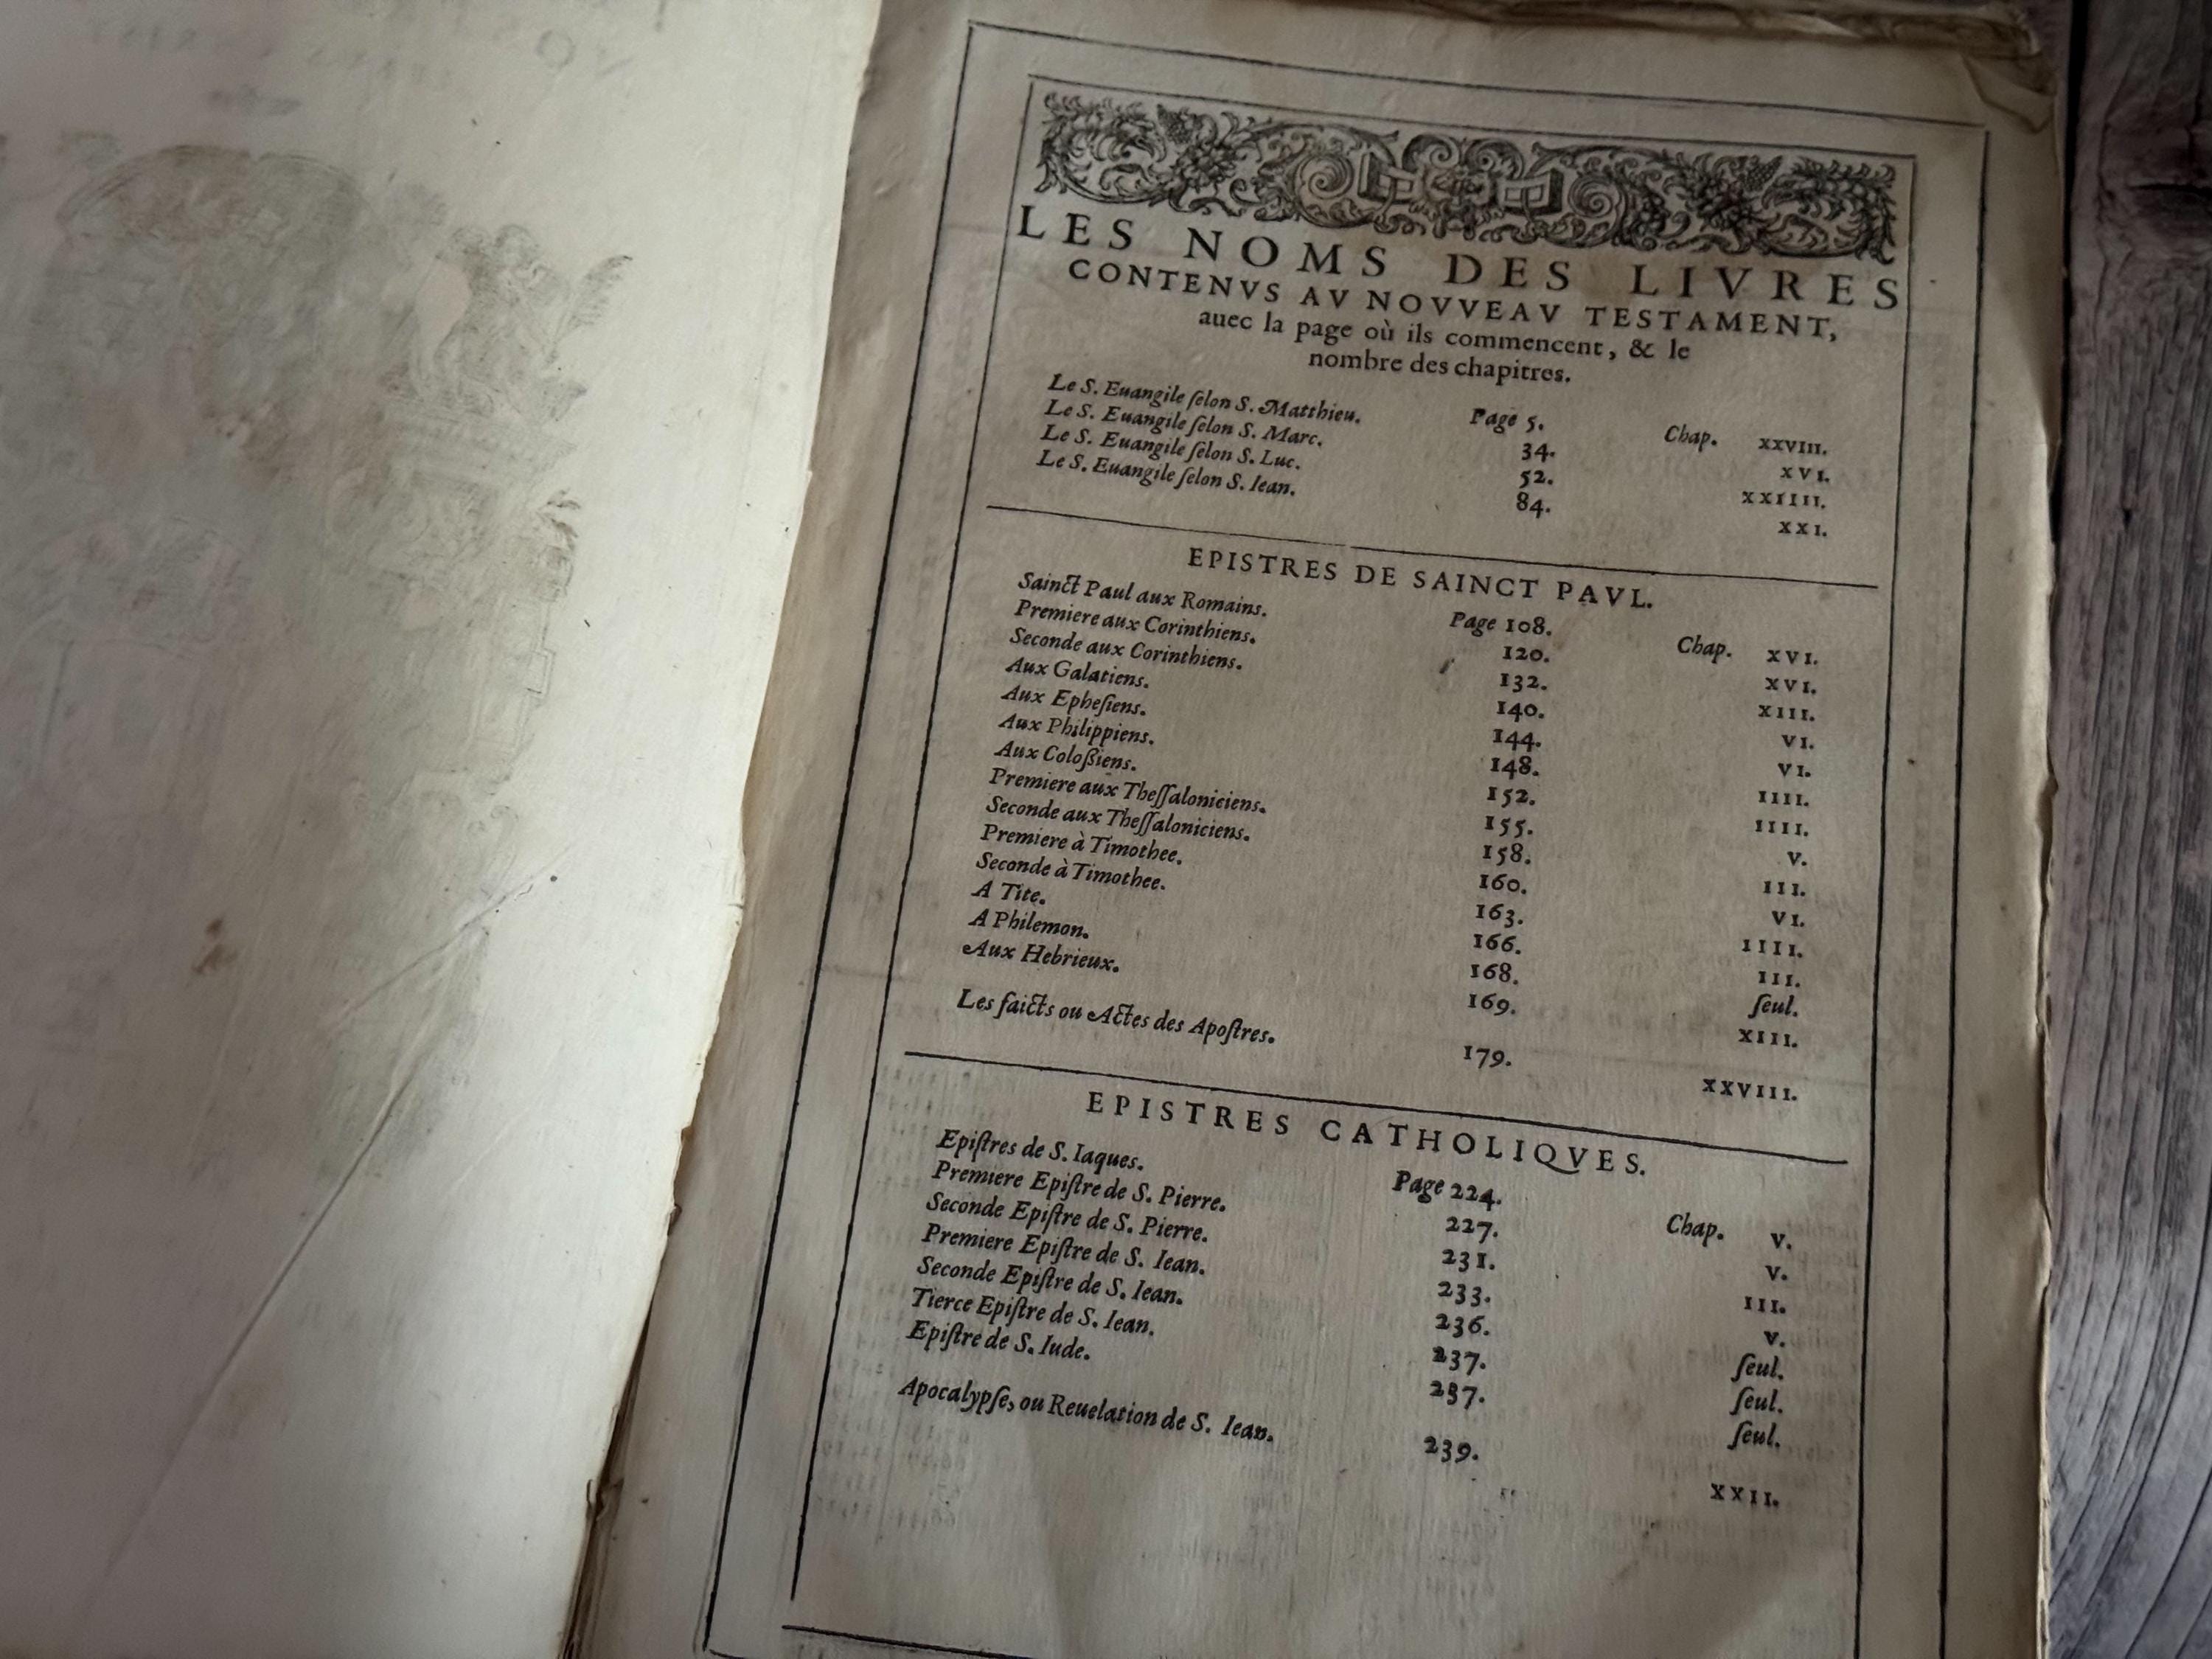 LES NOMS DES LIVRES
CONTENVS AV NOVVEAV TESTAMENT,
auec la page où ils commencent, & le
nombre des chapitres.
Le S. Euangile ſelon S. Matthieu. Page 5. Chap. XXVIII.
Le S. Euangile ſelon S. Marc. 34. XVI.
Le S. Euangile ſelon S. Luc. 52. XXIIII.
Le S. Euangile ſelon S. Iean. 84. XXI.
EPISTRES DE SAINCT PAVL.
Sainct Paul aux Romains. Page 108. Chap. XVI.
Premiere aux Corinthiens. 120. XVI.
Seconde aux Corinthiens. 132. XIII.
Aux Galatiens. 140. VI.
Aux Epheſiens. 144. VI.
Aux Philippiens. 148. IIII.
Aux Coloßiens. 152. IIII.
Premiere aux Theſſaloniciens. 155. V.
Seconde aux Theſſaloniciens. 158. III.
Premiere à Timothee. 160. VI.
Seconde à Timothee. 163. IIII.
A Tite. 166. III.
A Philemon. 168. ſeul.
Aux Hebrieux. 169. XIII.
Les faicts ou Actes des Apoſtres. 179. XXVIII.
EPISTRES CATHOLIQVES.
Epiſtres de S. Iaques. Page 224. Chap. V.
Premiere Epiſtre de S. Pierre. 227. V.
Seconde Epiſtre de S. Pierre. 231. III.
Premiere Epiſtre de S. Iean. 233. V.
Seconde Epiſtre de S. Iean. 236. ſeul.
Tierce Epiſtre de S. Iean. 237. ſeul.
Epiſtre de S. Iude. 237. ſeul.
Apocalypſe, ou Reuelation de S. Iean. 239. XXII.